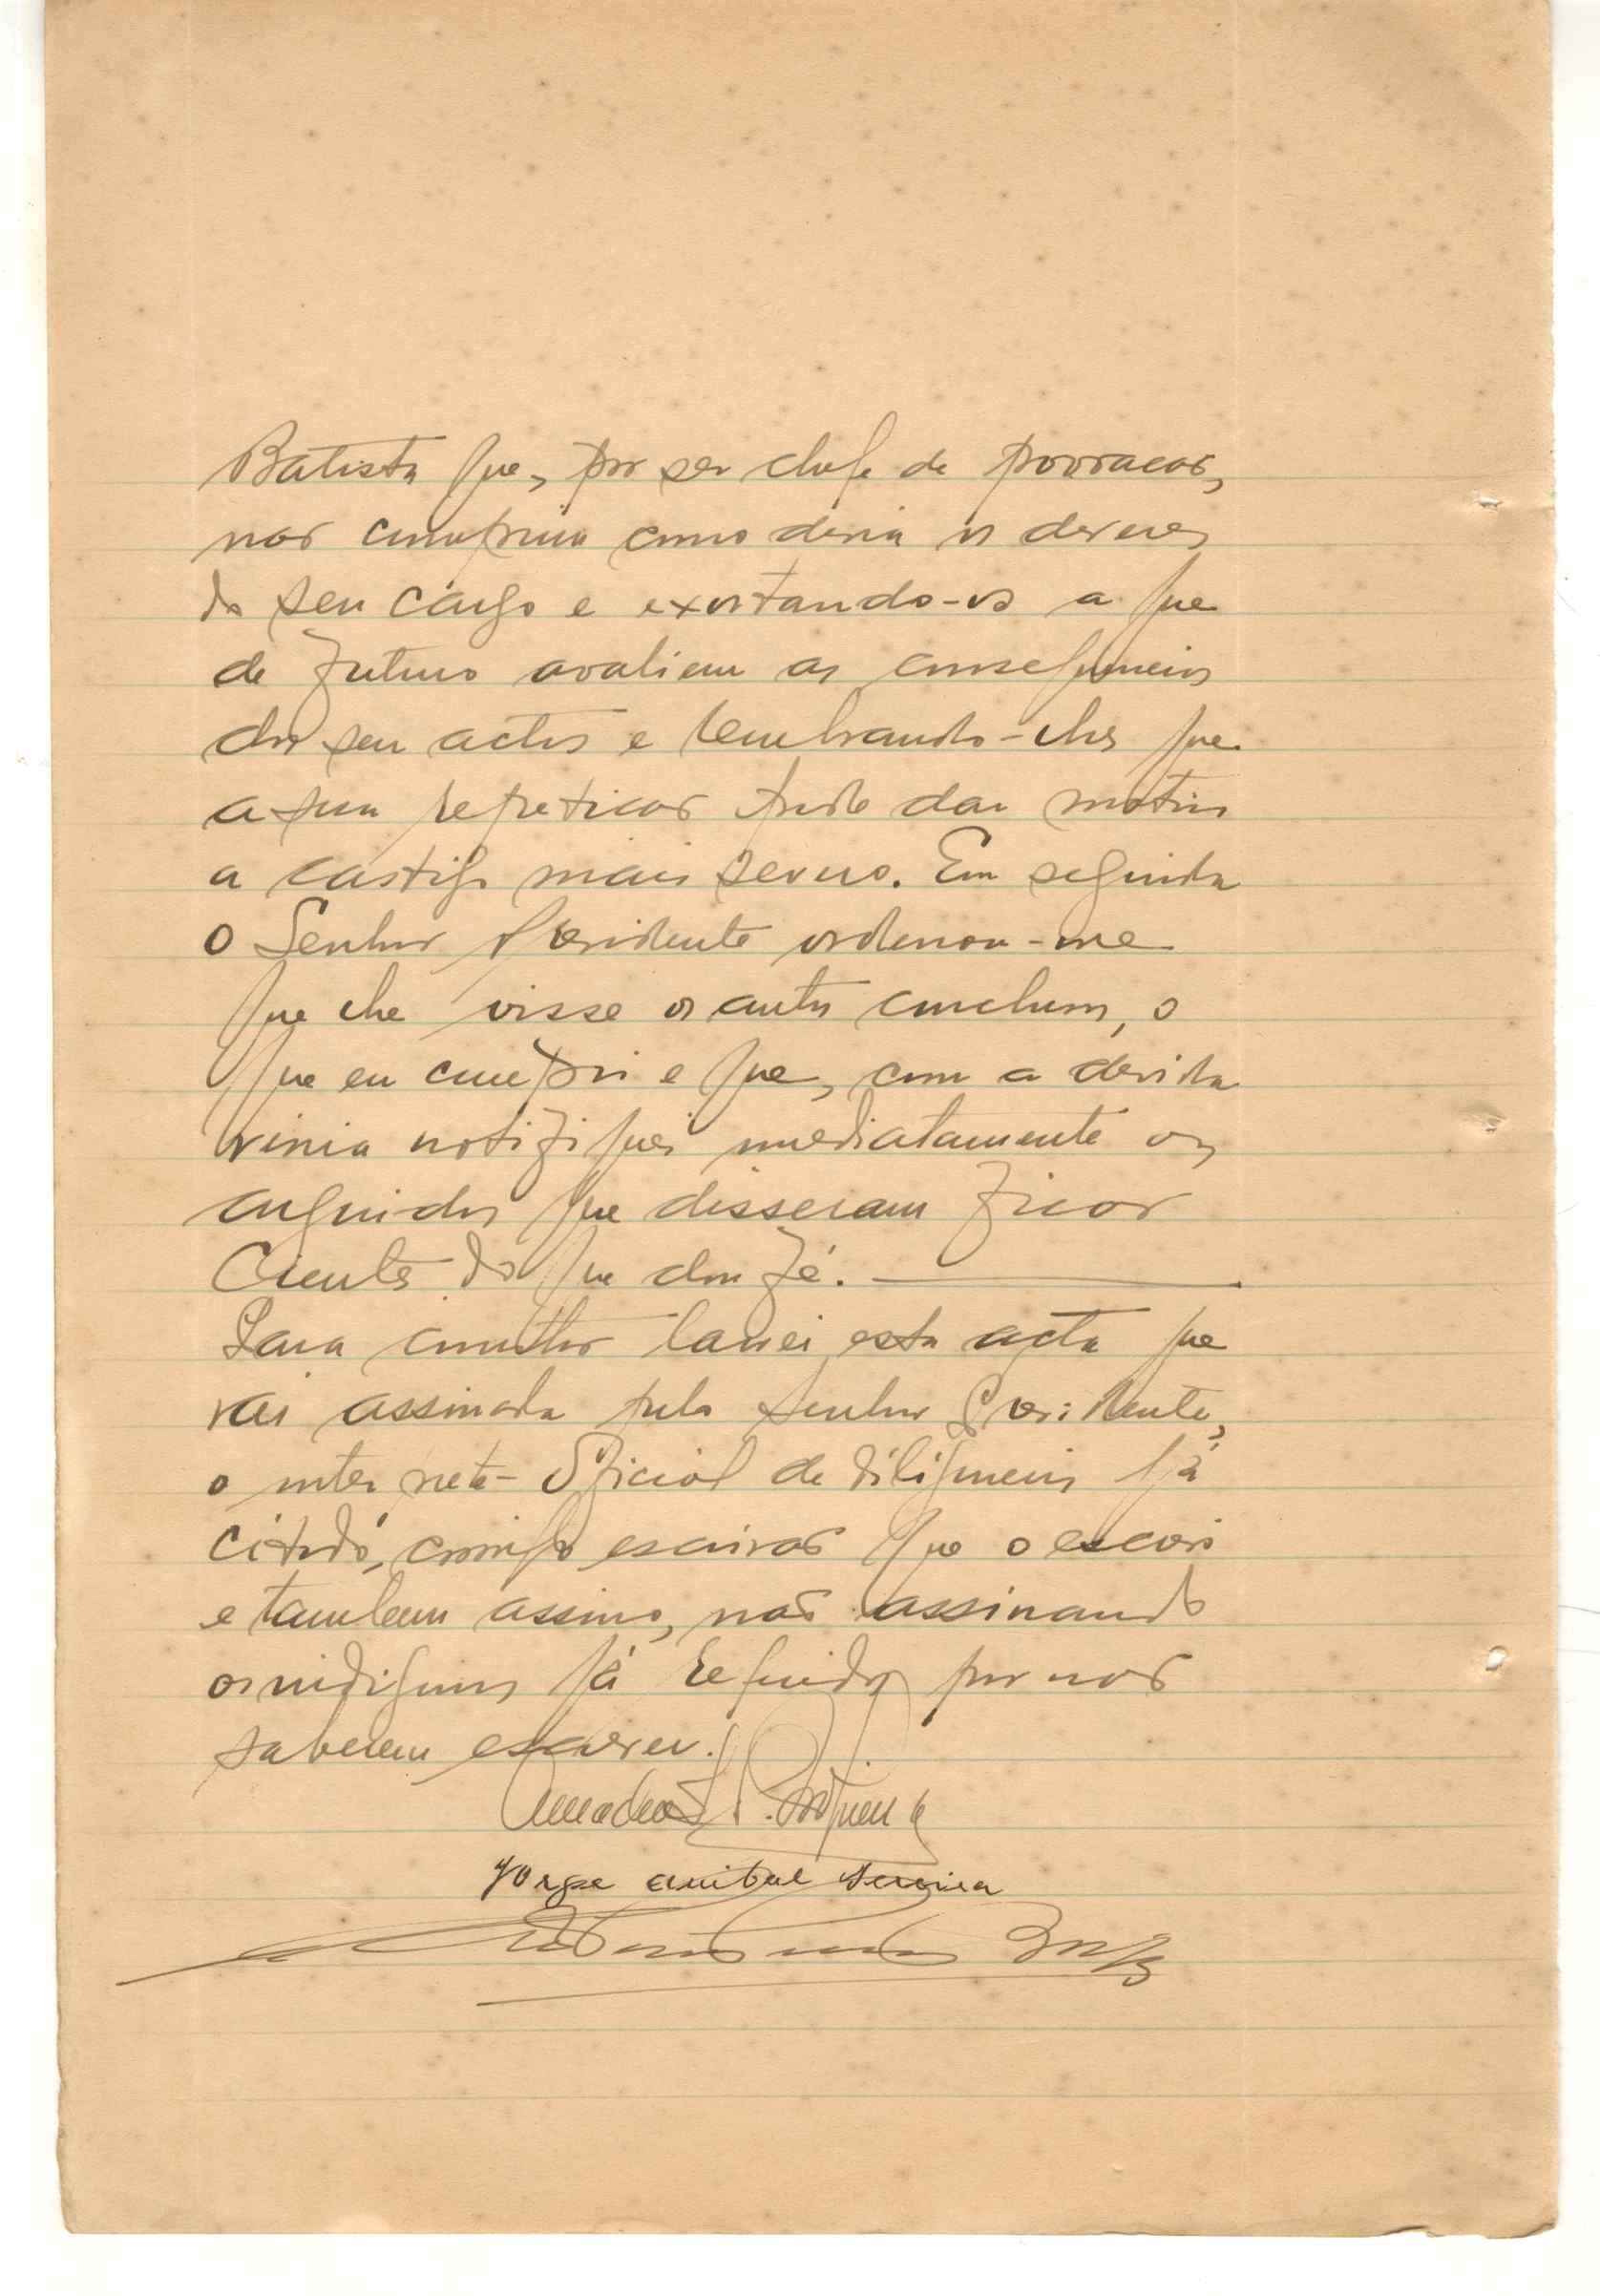 Batista que, por ser chefe de povoação,
não cumpriu como devia os deveres
do seu cargo e exortando-os a que
de futuro avaliem as consequencias
dos seu actos e lembrando-lhes que
a sua repetição pode dar motivo
a castigo mais severo. Em seguida
o Senhor Presidente ordenou-me
que lhe visse os autos conclusos, o
que eu cumpri e que, com a devida
venia notifiquei imediatamente os
arguidos que disseram ficar
cientes do que dou fé.
Para constar lavrei esta acta que
vai assinada pelo Senhor Presidente,
o interprete-Oficial de diligencias já
citado, comigo escrivão que o escrevi
e tambem assino, não assinando
os indigenas já referidos por não
saberem escrever.
Jorge Anibal